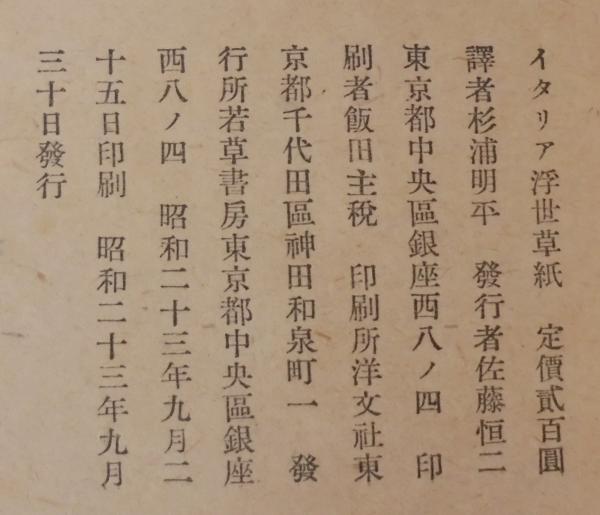 イタリア浮世草紙　定價貳百圓
譯者杉浦明平　發行者佐藤恒二
東京都中央區銀座西八ノ四　印
刷者飯田主税　印刷所洋文社東
京都千代田區神田和泉町一　發
行所若草書房東京都中央區銀座
西八ノ四　昭和二十三年九月二
十五日印刷　昭和二十三年九月
三十日發行